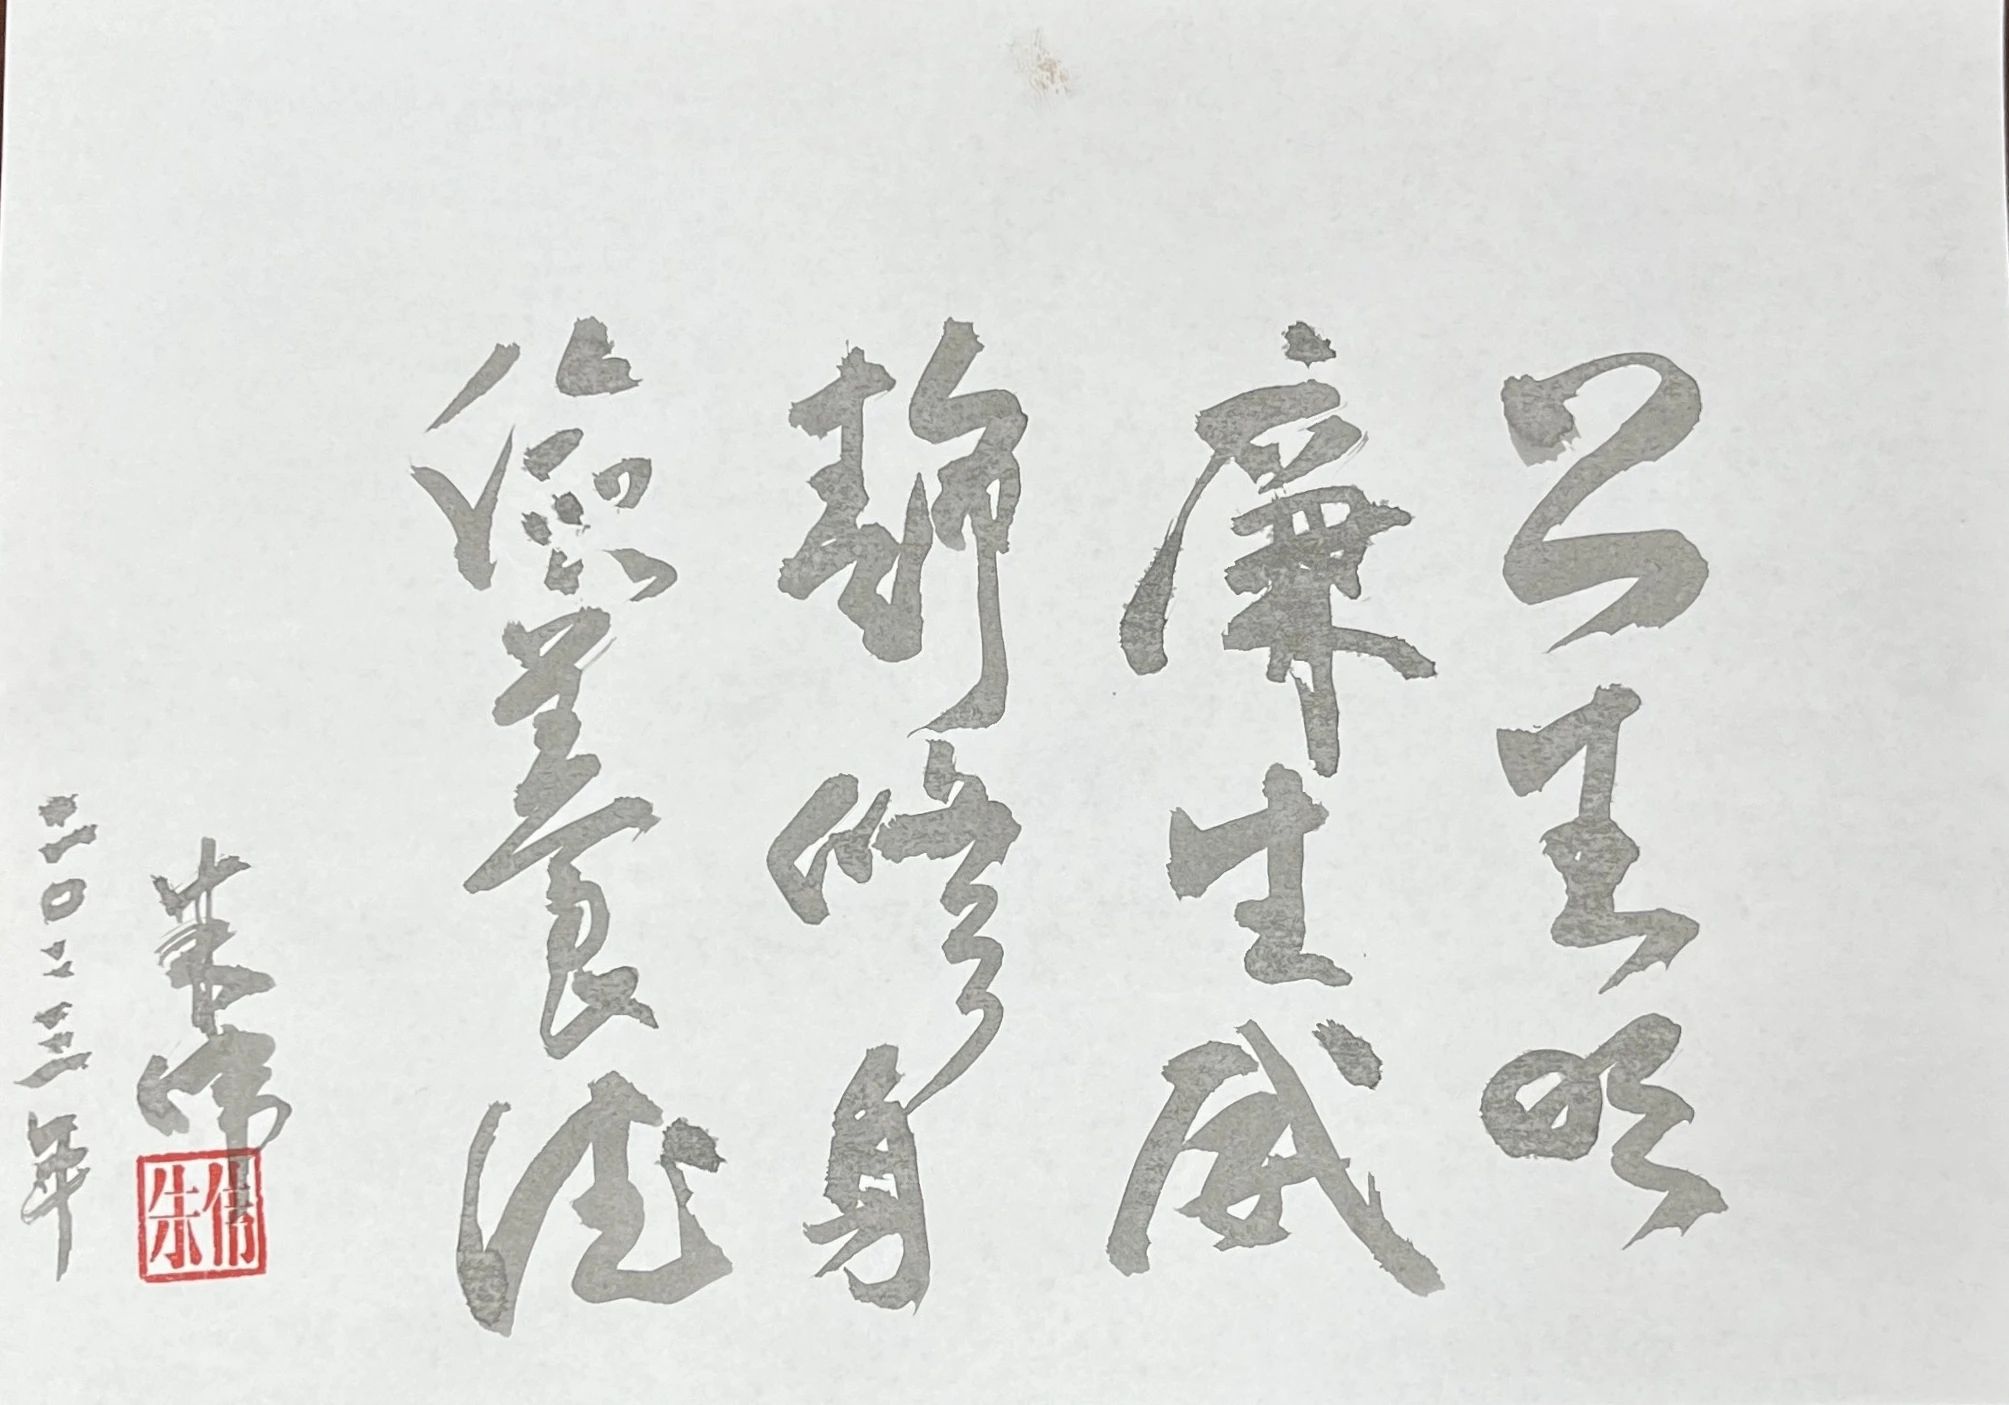 公生明
廉生威
静修身
俭养德
朱伟
二〇二三年
朱伟